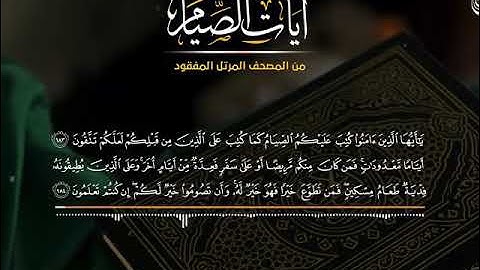 آيات الصِّيَام
من المصحف المرتل المفقود
يَٰٓأَيُّهَا ٱلَّذِينَ ءَامَنُوا۟ كُتِبَ عَلَيْكُمُ ٱلصِّيَامُ كَمَا كُتِبَ عَلَى ٱلَّذِينَ مِن قَبْلِكُمْ لَعَلَّكُمْ تَتَّقُونَ ١٨٣
أَيَّامًا مَّعْدُودَٰتٍ فَمَن كَانَ مِنكُم مَّرِيضًا أَوْ عَلَىٰ سَفَرٍ فَعِدَّةٌ مِّنْ أَيَّامٍ أُخَرَ وَعَلَى ٱلَّذِينَ يُطِيقُونَهُۥ
فِدْيَةٌ طَعَامُ مِسْكِينٍ فَمَن تَطَوَّعَ خَيْرًا فَهُوَ خَيْرٌ لَّهُۥ وَأَن تَصُومُوا۟ خَيْرٌ لَّكُمْ إِن كُنتُمْ تَعْلَمُونَ ١٨٤